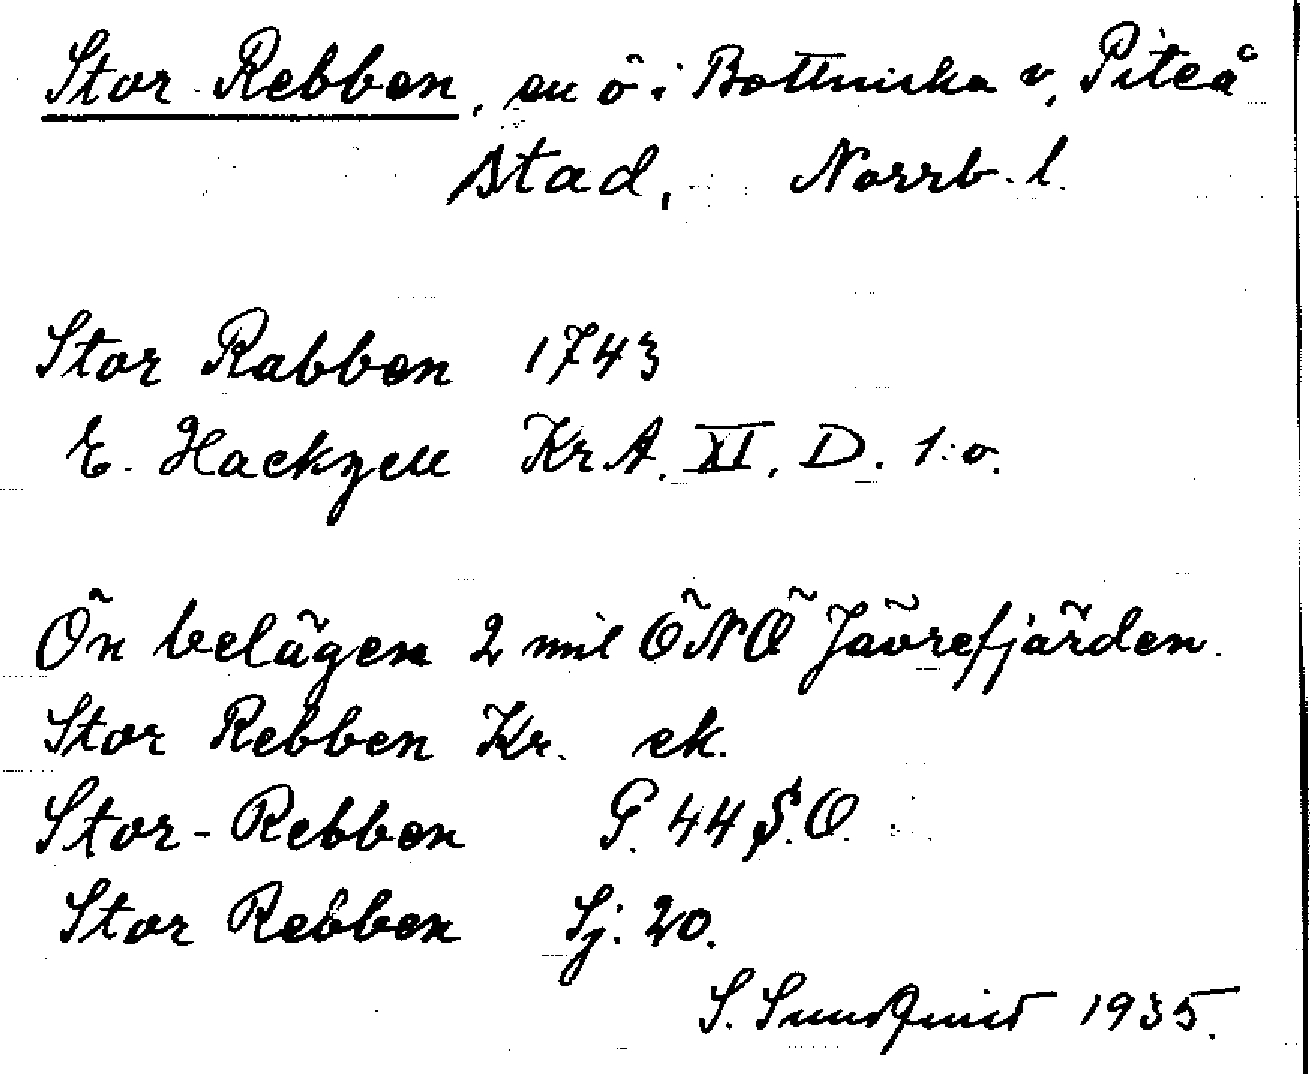 Stor-Rebben, en ö i Bottniska v, Piteå
stad, Norrb. l.
Stor Rabben 1743
E. Hackzell Kr. A. XI. D. 1:o.
Ön belägen 2 mil ÖNÖ Jävrefjärden.
Stor Rebben Kr. ek.
Stor-Rebben G. 44 S.O.
Stor Rebben Sj. 20.
S. Sundqvist 1935.